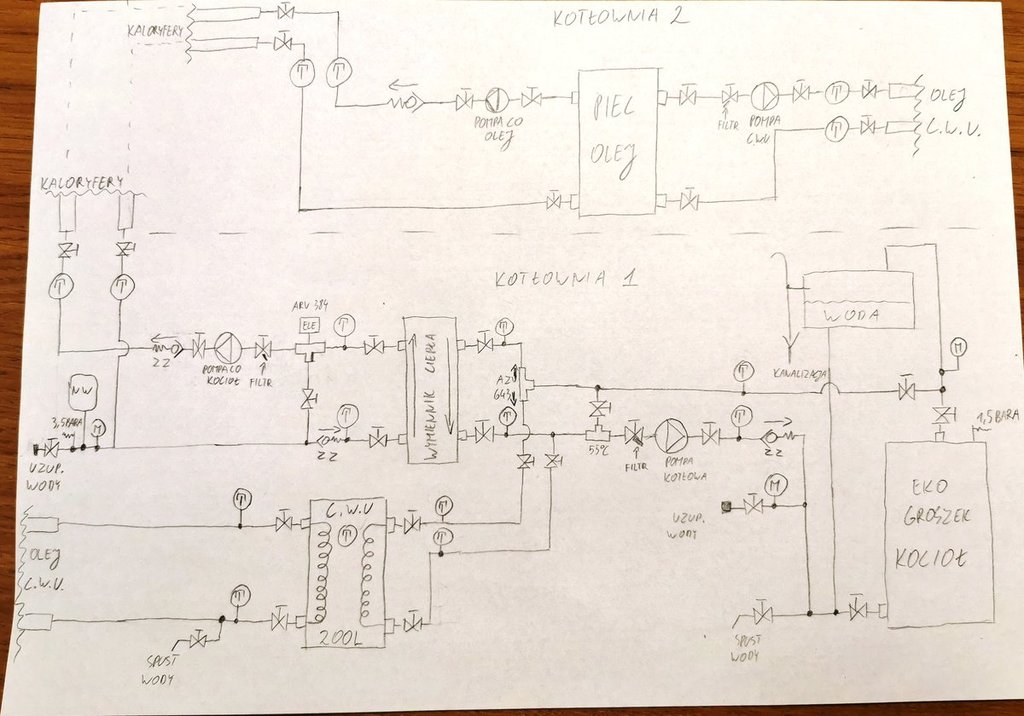 KOTŁOWNIA 2
KALORYFERY
T
T
POMPA CO
OLEJ
PIEC
OLEJ
FILTR
POMPA
CWU
T
T
OLEJ
C.W.U.
KALORYFERY
T
T
KOTŁOWNIA 1
ARV 384
ELE
T
ZZ
POMPA CO
KOCIOŁ
FILTR
NW
3,5BARA
M
UZUP.
WODY
ZZ
T
WYMIENNIK CIEPŁA
T
T
55°C
FILTR
POMPA
KOTŁOWA
T
T
ZZ
KANALIZACJA
WODA
M
1,5BARA
UZUP.
WODY
M
EKO
GROSZEK
KOCIOŁ
SPUST
WODY
OLEJ
C.W.U.
T
T
SPUST
WODY
C.W.U
T
200L
T
T